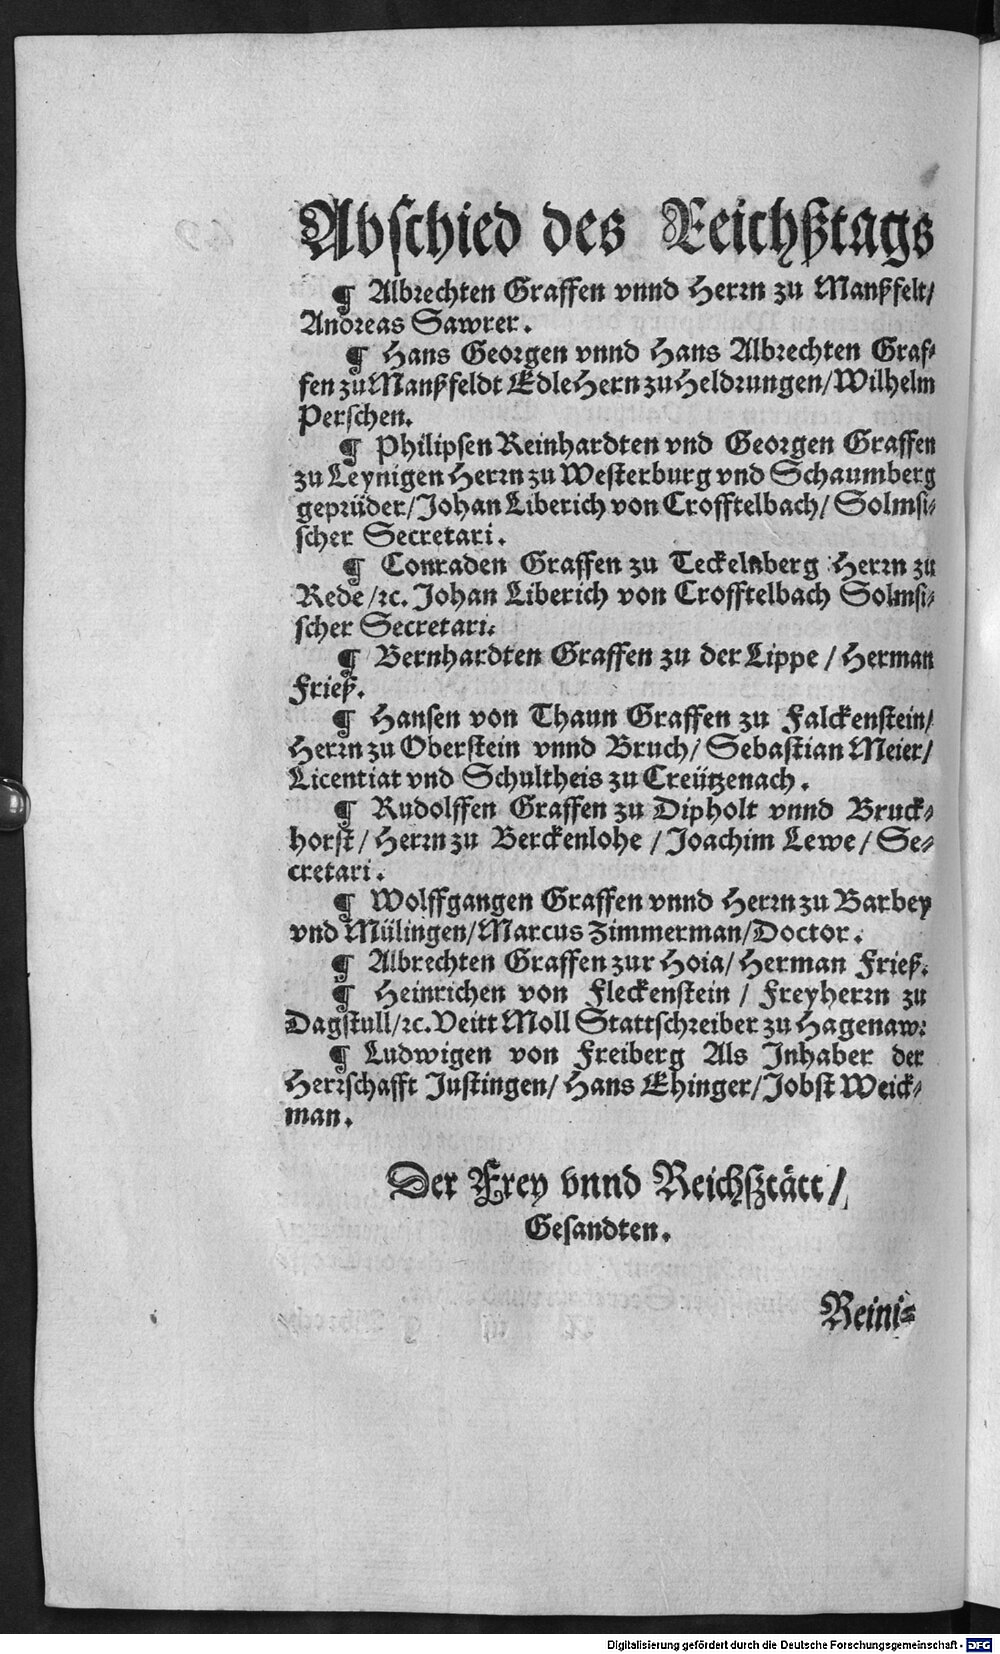 Abschied des Reichßtags
¶ Albrechten Graffen vnnd Herrn zu Manßfelt/
Andreas Sawrer.
¶ Hans Georgen vnnd Hans Albrechten Graf⸗
fen zu Manßfeldt Edle Hern zu Heldrungen/ Wilhelm
Perschen.
¶ Philipsen Reinhardten vnd Georgen Graffen
zu Leynigen Herrn zu Westerburg vnd Schaumberg
geprüder/ Johan Liberich von Crofftelbach/ Solmsi⸗
scher Secretari.
¶ Conraden Graffen zu Teckelnberg Herrn zu
Rede/ ꝛc. Johan Liberich von Crofftelbach Solmsi⸗
scher Secretari.
¶ Bernhardten Graffen zu der Lippe/ Herman
Frieß.
¶ Hansen von Thaun Graffen zu Falckenstein/
Herrn zu Oberstein vnnd Bruch/ Sebastian Meier/
Licentiat vnd Schultheis zu Creützenach.
¶ Rudolffen Graffen zu Dipholt vnnd Bruck⸗
horst/ Herrn zu Berckenlohe/ Joachim Lewe/ Se⸗
cretari.
¶ Wolffgangen Graffen vnnd Herrn zu Barbey
vnd Mülingen/ Marcus Zimmerman/ Doctor.
¶ Albrechten Graffen zur Hoia/ Herman Frieß.
¶ Heinrichen von Fleckenstein/ Freyherrn zu
Dagstull/ ꝛc. Veitt Moll Stattschreiber zu Hagenaw.
¶ Ludwigen von Freiberg Als Inhaber der
Herrschafft Justingen/ Hans Ehinger/ Jobst Weick⸗
man.
Der Frey vnnd Reichsztätt/
Gesandten.
Reini⸗
Digitalisierung gefördert durch die Deutsche Forschungsgemeinschaft - DFG